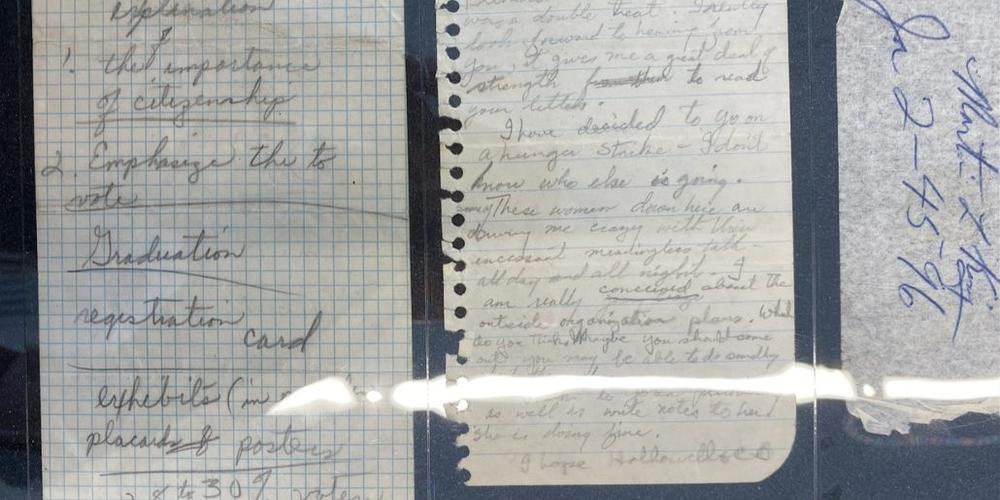 explanation
of
1. the importance
of citizenship
2. Emphasize the to
vote
Graduation
registration
card
exhibits (in
placards & posters
to 309 votes
was a double treat. I really
look forward to hearing from
you, it gives me a great deal of
strength from them to read
your letters.
I have decided to go on
a hunger strike - I don't
know who else is going.
These women down here are
driving me crazy with their
incessant meaningless talk -
all day and all night. I
am really concerned about the
outside organization plans. What
do you think? Maybe you should come
out you may be able to do
to
as well as write notes to her
she is doing fine.
I hope
Ja 2-45-96